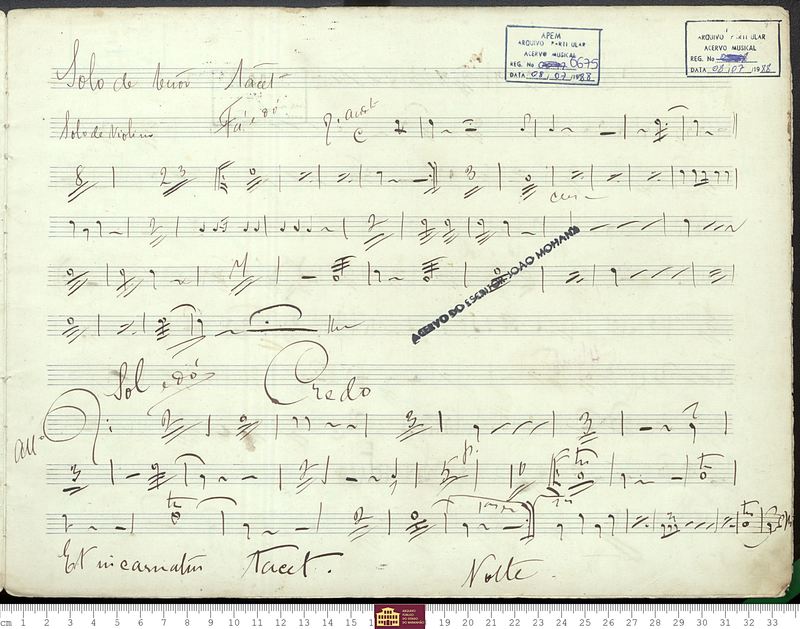 Solo de tenor Tacet
APEM
ARQUIVO PARTICULAR
ACERVO MUSICAL
REG. No 0675
DATA 08/07/1988
ARQUIVO PARTICULAR
ACERVO MUSICAL
REG. No
DATA 08/07/1988
Solo de Violino Fá e dó
ACERVO DO ESCRITOR JOÃO MOHANA
Sol e dó Credo
All.º
Et incarnatus Tacet.
Volte.
ARQUIVO
PÚBLICO
DO ESTADO
DO MARANHÃO
cm 1 2 3 4 5 6 7 8 9 10 11 12 13 14 15 19 20 21 22 23 24 25 26 27 28 29 30 31 32 33